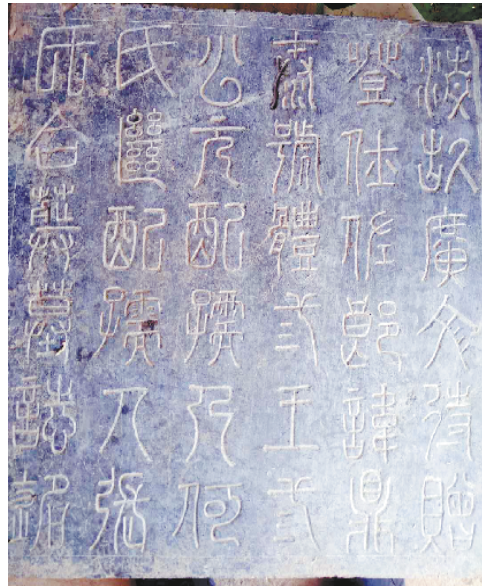 清故廣待贈
登仕佐郎諱鼎
泰號體王
公元配孺人何
氏繼配孺人張
氏合葬墓誌銘